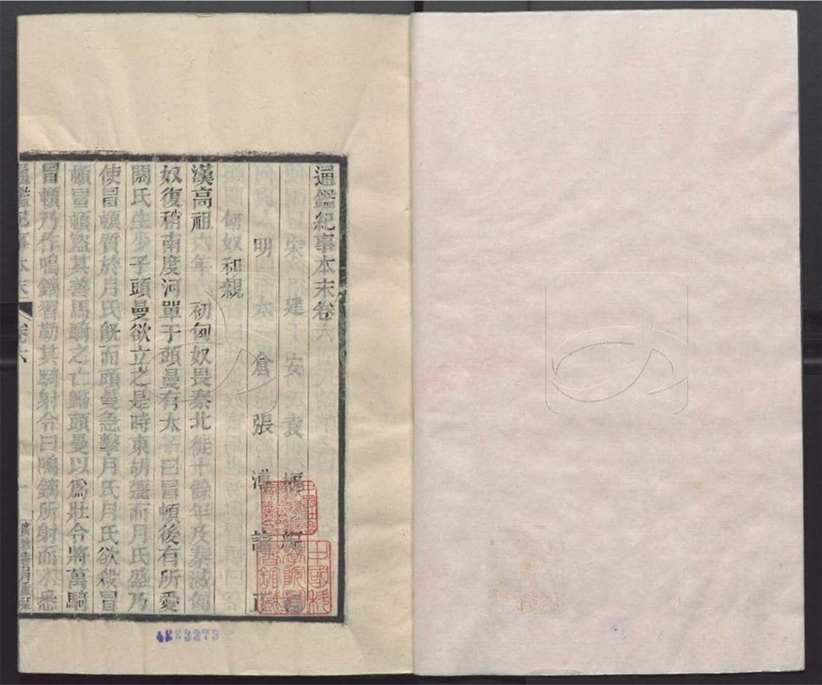 通鑑紀事本末卷六
宋 建 安 袁 樞 編
明 太 倉 張 溥 論正
匈奴和親
漢高祖六年 初匈奴畏秦北徙十餘年及秦滅匈
奴復稍南度河單于頭曼有太子曰冒頓後有所愛
閼氏生少子頭曼欲立之是時東胡彊而月氏盛乃
使冒頓質於月氏既而頭曼急擊月氏月氏欲殺冒
頓冒頓盜其善馬騎之亡歸頭曼以爲壯令將萬騎
冒頓乃作鳴鏑習勒其騎射令曰鳴鏑所射而不悉
通鑑紀事本末 卷六 一
4223273